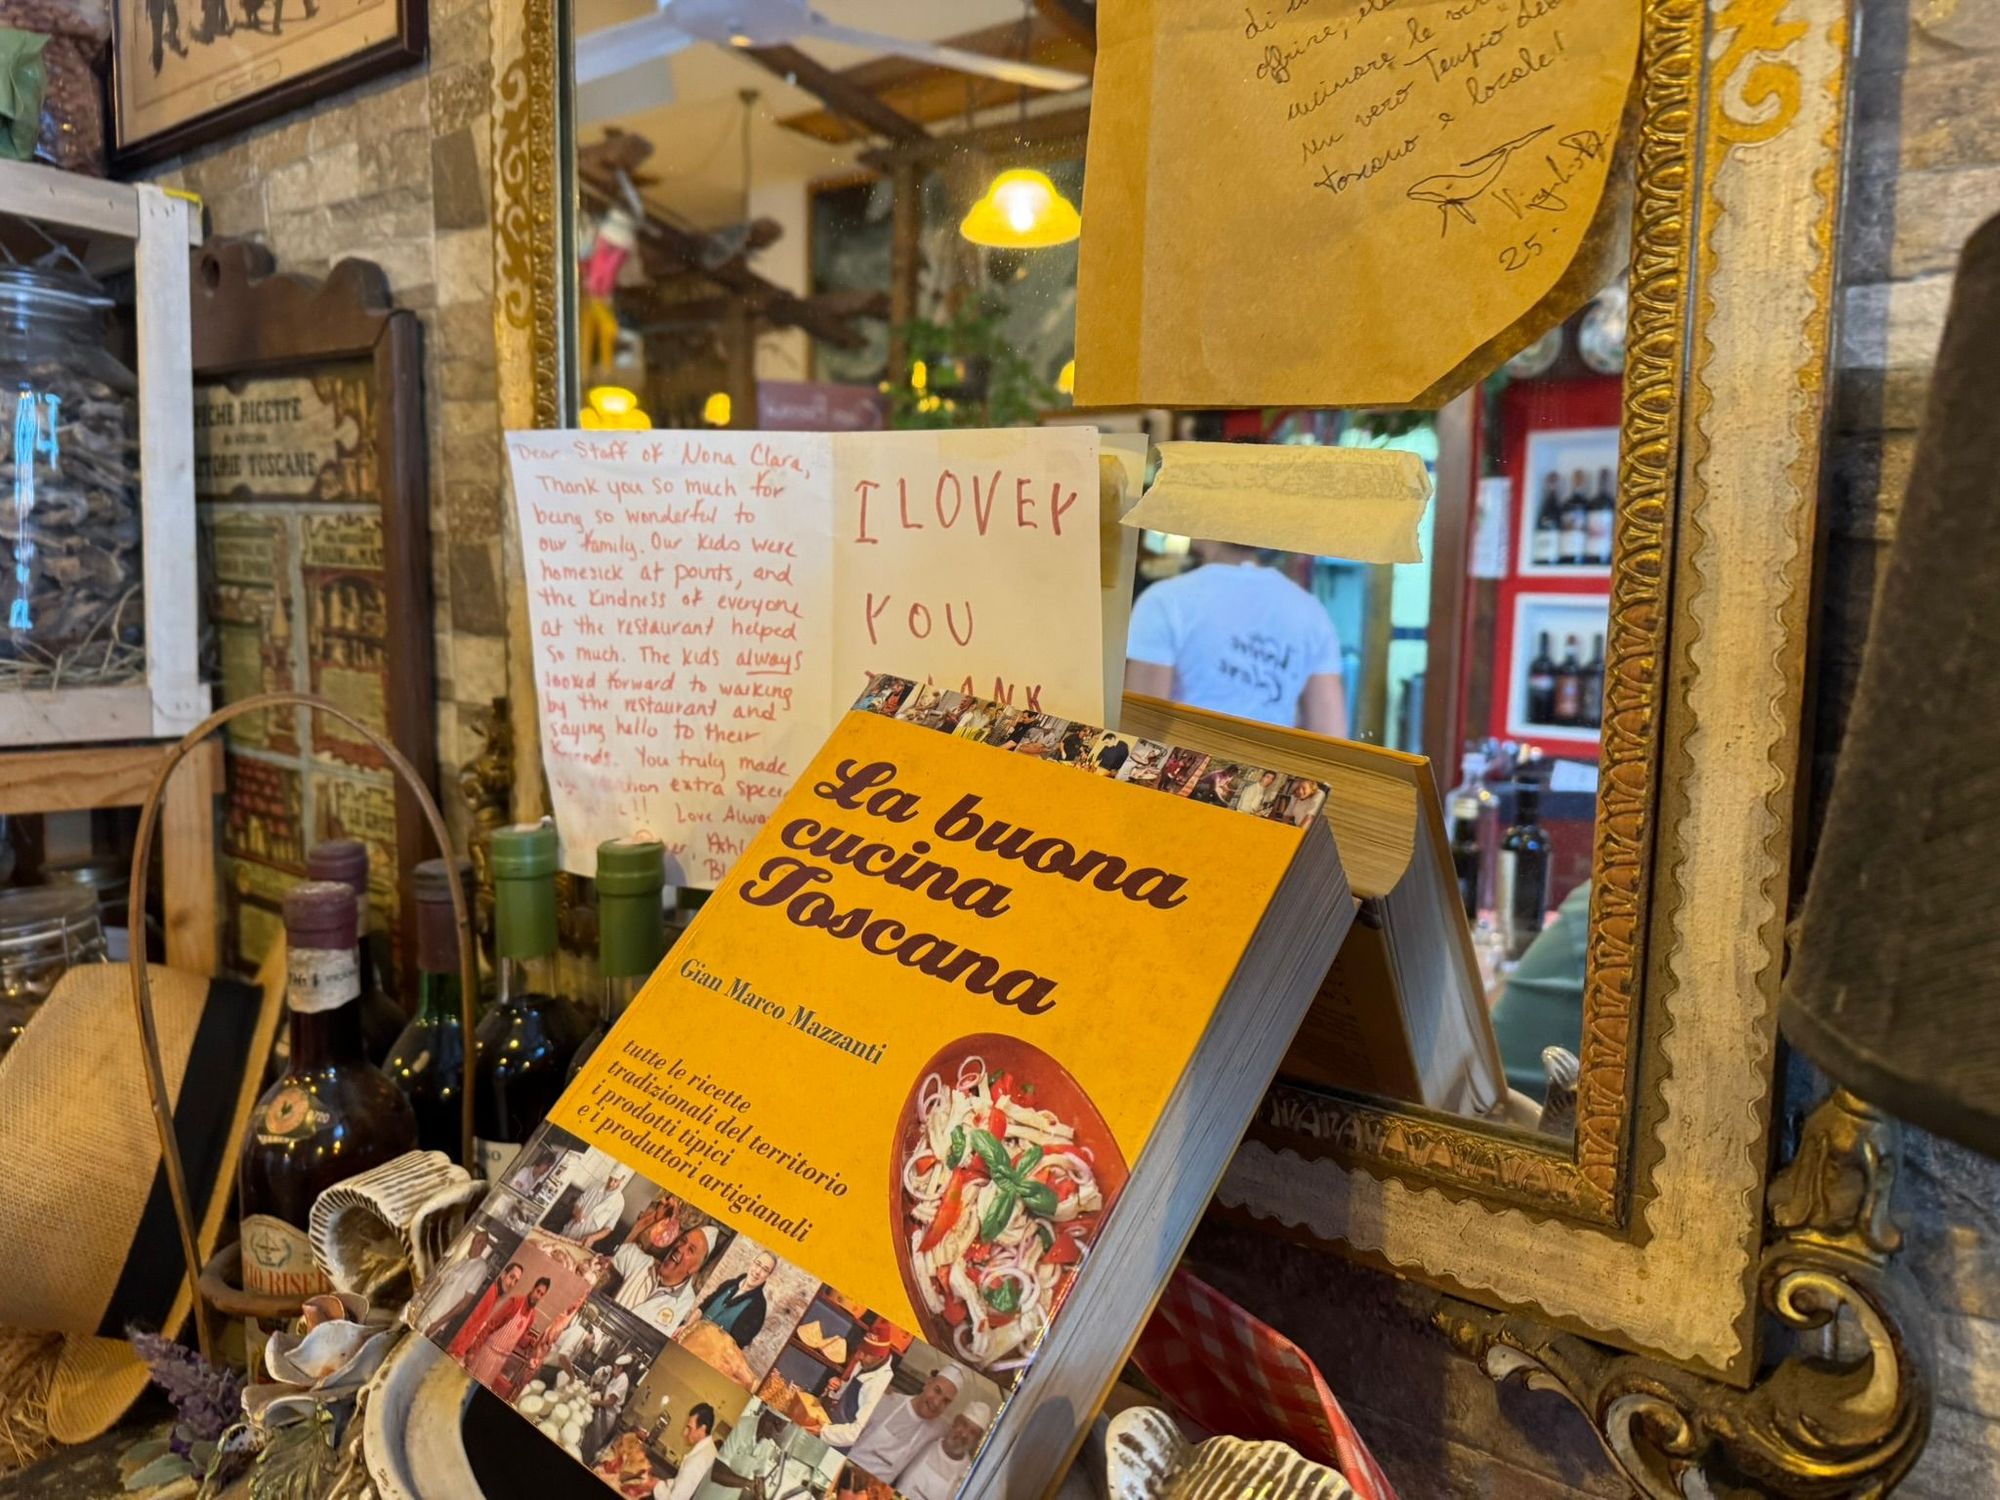 offrire, 
cucinare le
un vero Tempio del
toscano e locale!
25.
PICHE RICETTE
TORIE TOSCANE
Dear Staff of Nona Clara,
Thank you so much for
being so wonderful to
our family. Our kids were
homesick at points, and
the kindness of everyone
at the restaurant helped
so much. The kids always
looked forward to walking
by the restaurant and
saying hello to their
friends. You truly made
extra
!! Love
I LOVEY
YOU
La buona
cucina
Toscana
Gian Marco Mazzanti
tutte le ricette
tradizionali del territorio
i prodotti tipici
e i produttori artigianali